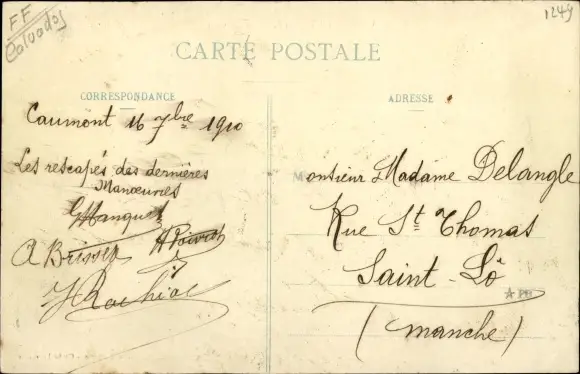 FF
Calvados
1249
CARTE POSTALE
CORRESPONDANCE
ADRESSE
Caumont 16 7bre 1910
Les rescapés des dernières
Manoeuvres
A Brisset
A Poirier
Monsieur Madame Delangle
Rue St Thomas
Saint-Lô
(Manche)